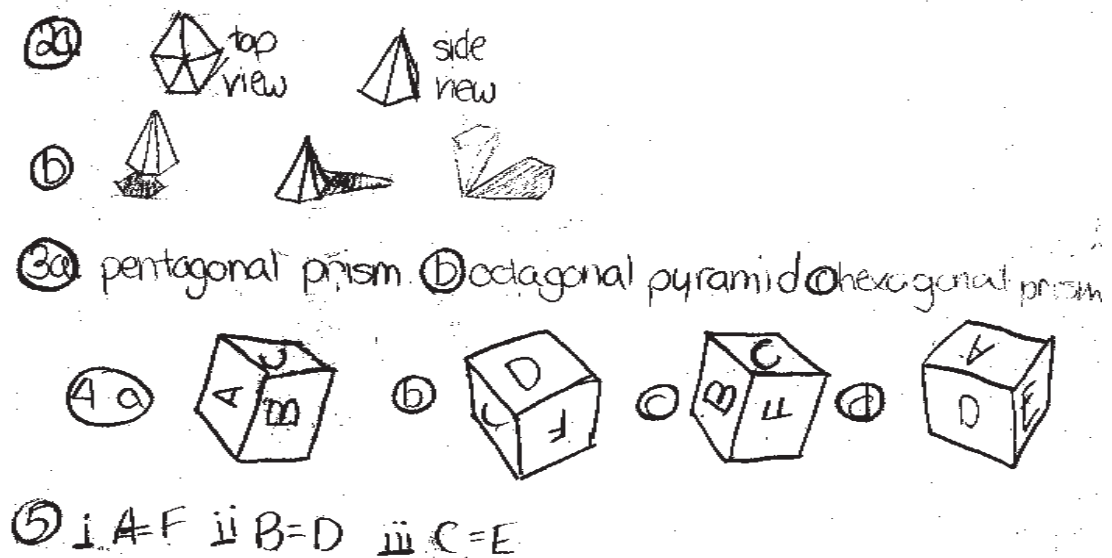 2a top view side view
b
3a pentagonal prism b octagonal pyramid c hexagonal prism
4a A C B b D C F c C B F d A D E
5 i A=F ii B=D iii C=E